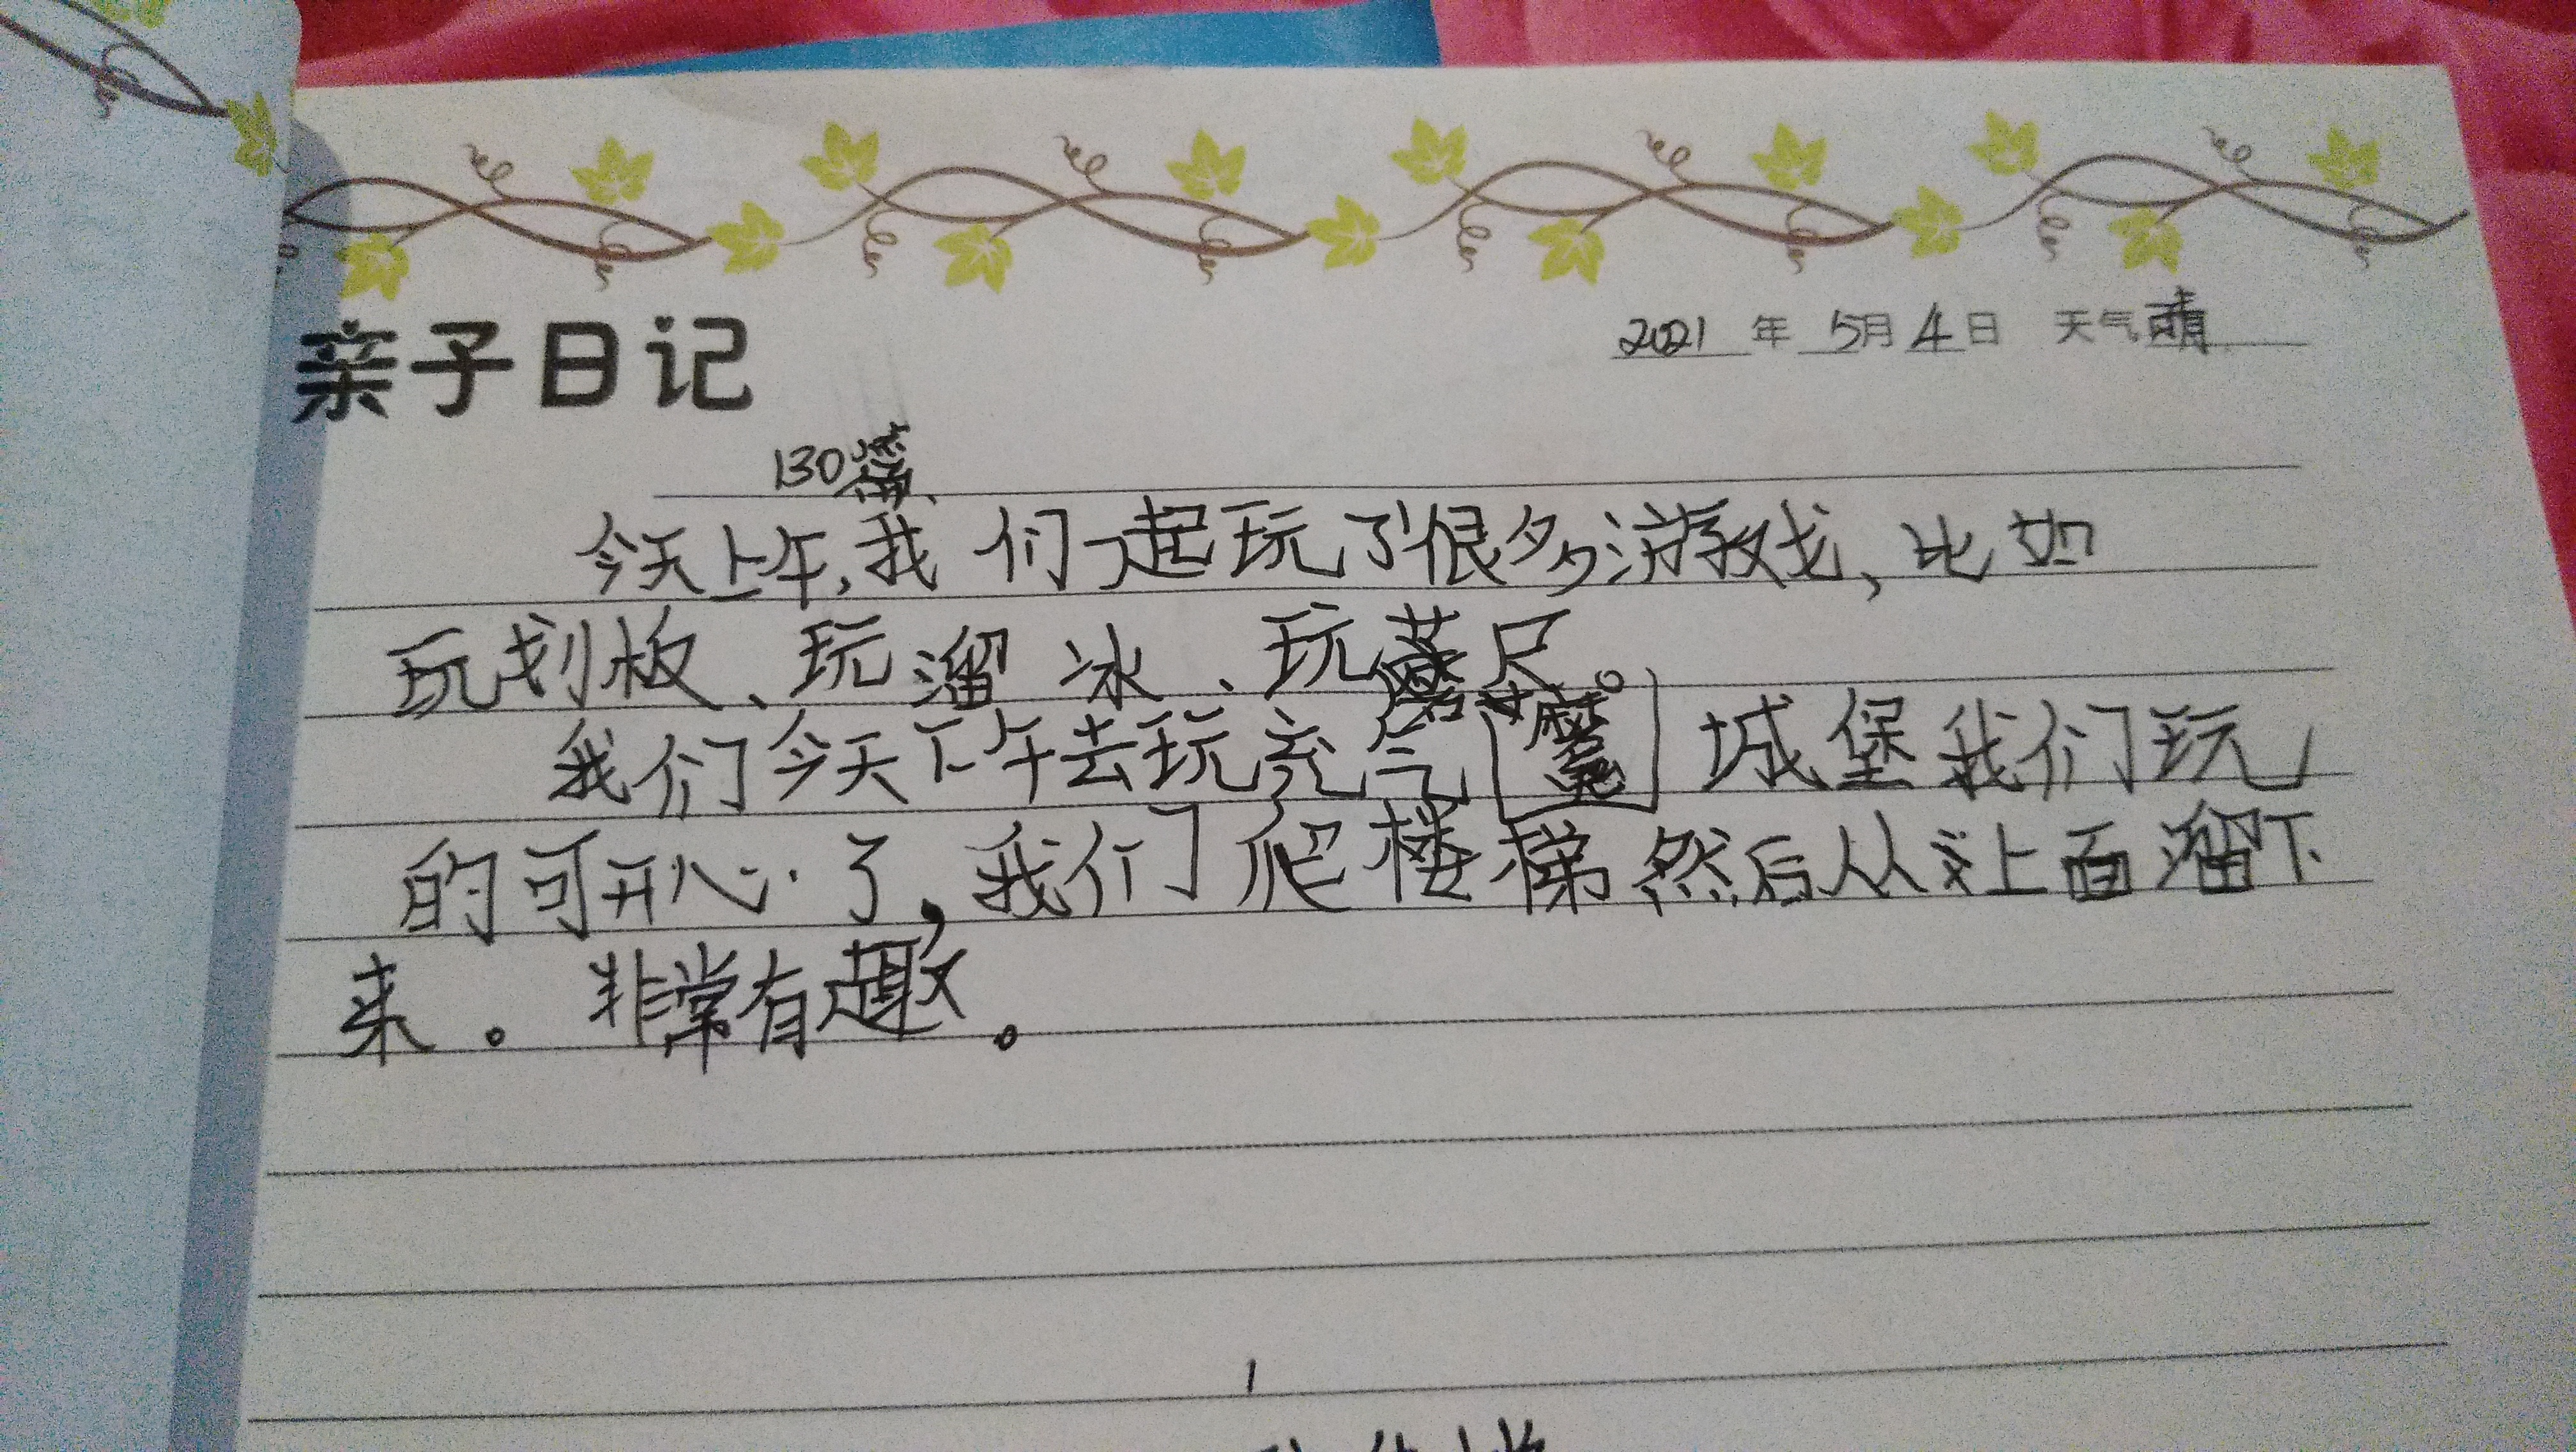 亲子日记
2021年5月4日 天气晴
130篇
今天上午,我们一起玩了很多游戏、比如
玩划板、玩溜冰、玩 尺。
我们今天下午去玩充气 城堡我们玩
的可开心了,我们爬楼梯然后从 上面溜下
来。非常有趣。